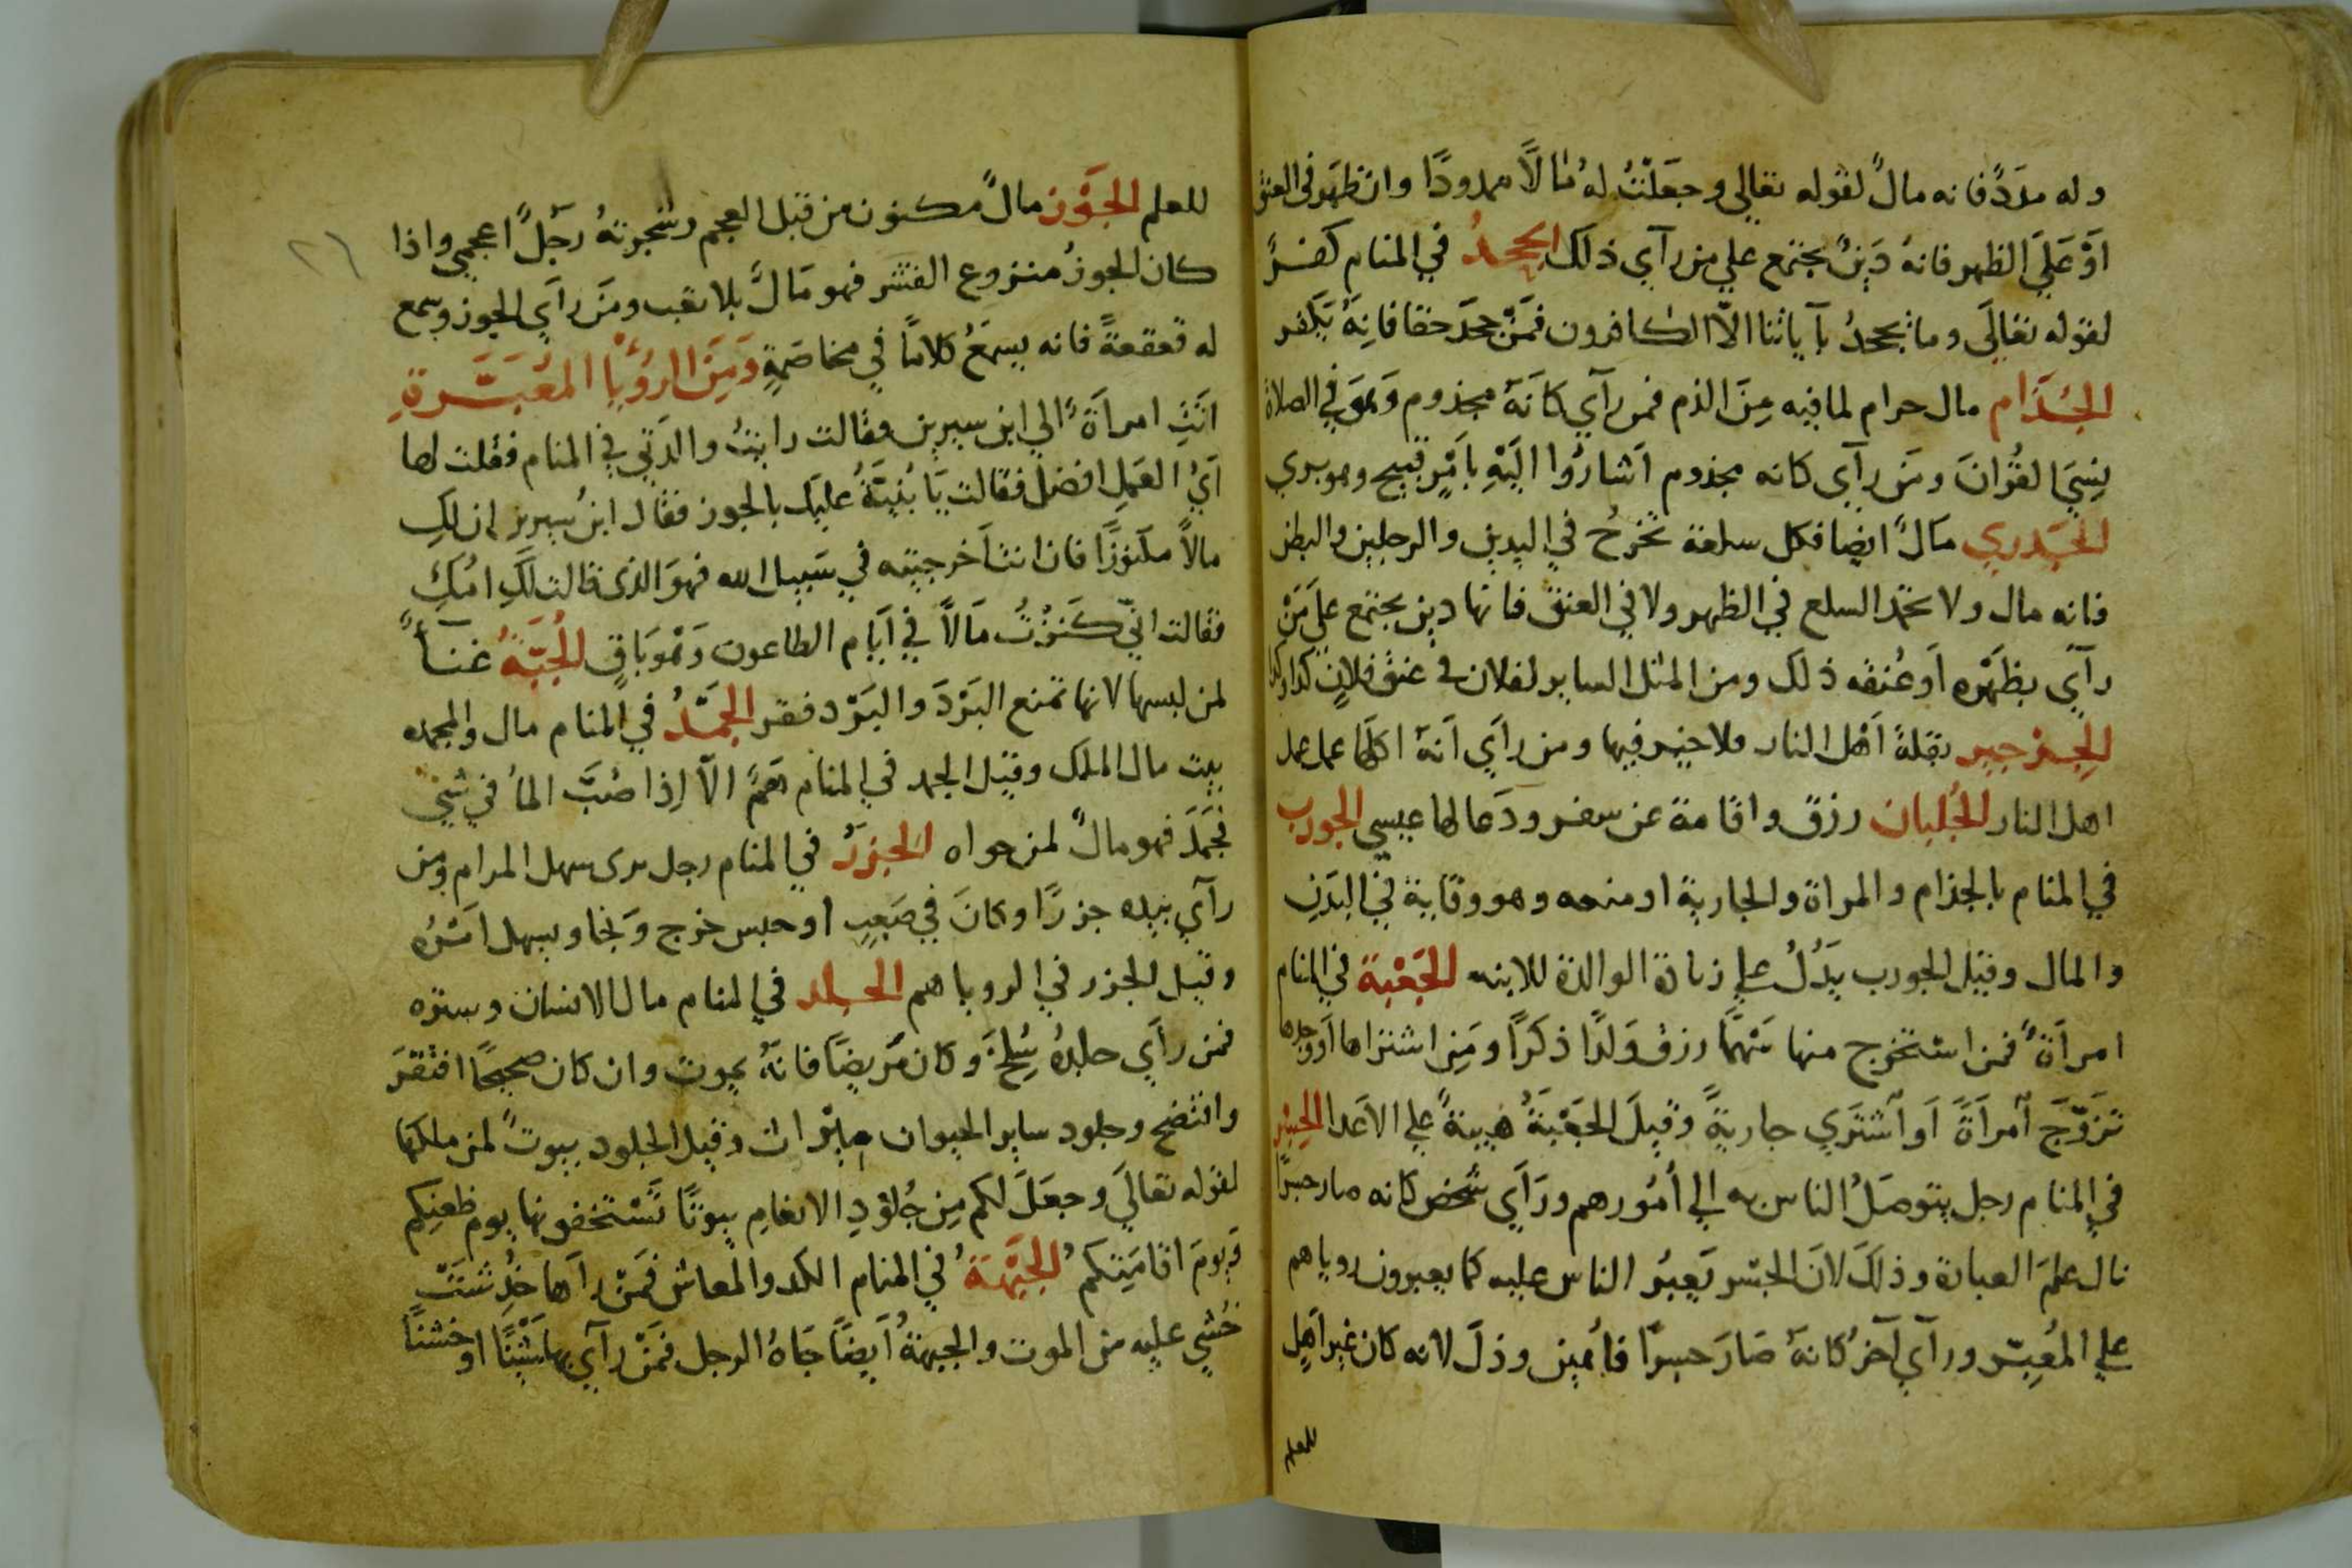 وله مدَدٌ فانه مالٌ لقوله تعالي وجعَلتُ لهُ مَالاً ممدودًا وان ظهَر في العنق
اَوْ عَلَي الظهر فانهُ دَينٌ يجتمع علي من رآي ذلك الجحدُ في المنام كفرٌ
لقوله تعَالَي وما يجحدُ بآياتنا الاّ الكافرون فمَنْ جحدَ حقا فانه يَكفر
الجُذَام مال حرام لما فيه مِنَ الذم فمن رآي كانَهُ مجذوم وَهوَ في الصلاة
نسِيَ القُرانَ ومَن رآي كانه مجذوم اَشارُوا اليَهِ بامْرٍ قبيح وهو بري
الجُدري مَالٌ ايضا فكل سلعة تخرُج في اليدين والرجلين والبطن
فانه مال ولا تحمد السلع في الظهر ولا في العنق فانها دين يجتمع علَي مَنْ
رآي بظهْره اَو عُنقه ذلك ومن المثل الساير لفلان في عنق فلانٍ كذا وكذا
الجِرْجير بقلةُ اَهْل النار ولا خيْر فيها ومن رآي اَنهُ اكلها عمل عمل
اهل النار الجُلبان رزق واقامة عن سفر ودَعا لها عيسي الجورب
في المنام بالجذام والمراة والجارية او منحه وهو وقاية في البدَنِ
والمال وقيل الجورب يَدُلُ علي زناة الوالدة للابنه الجَعْبة في المنام
امرأَةٌ فمن استخرج منها سَهْمًا رزق وَلدًا ذكرًا ومَن اشتراها اَوْ وجدها
تزَوَّجَ امرَأَةً اَو اَشتَري جاريةً وقيلَ الجَعْبَةُ هيبةٌ علي الاَعدا الجسْر
في المنام رجل يتوصَلُ الناس به الي اُمُورهم ورَآي شخص كانه صار جسرًا
نال علمَ العبارة وذلكَ لانَ الجسْر يَعبُر الناس عليه كما يعبرون روياهم
علي المُعبِّر ورآي آخرُ كانهُ صَارَ جسرًا فاُهين وذلَ لانه كان غير اَهلٍ
للعلم
٢٦
للعلم الجَوْز مالٌ مكنون من قبل العجم وشجرتهُ رَجلٌ اعجمي واذا
كان الجوزُ منزوع القشر فهو مَالٌ بلا تعب ومَن رآَي الجوز وسمع
له قعقعةً فانه يسمَعُ كلامًا في مخاصَمةٍ وَمِنَ الرؤيا المعَبَّرةِ
اتَتِ امرأةٌ الي ابن سيرين وقالت رايتُ والدَتي في المنام فقلت لها
اَيُّ العَمِل افضل فقالت يَا بُنيَةُ عليكِ بالجوز فقال ابنُ سيرين ان لكِ
مالاً مكنوزًا فان انتِ اَخرجتِه في سَبيل الله فهوَ الذي قالت لَكِ امُكِ
فقالت انّي كنَزْتُ مَالاً في اَيَام الطاعون وَهوَ بَاقٍ الجُبَّةُ غنآً
لمن لبسها لانها تمنع البَرْدَ والبَرْد فقر الجمَدُ في المنام مال والمجمده
بيت مال الملك وقيل الجمد في المنام هَمٌّ الاّ اِذا صُبَّ الماُ في شئ
فجَمَدَ فهو مالٌ لمن حواه الجَزرُ في المنام رجل يرى سهل المرام ومن
رآي بيده جزرًا وكانَ في صَعبٍ او حبس خرج وَنجا ويسهل اَمْرُه
وقيل الجزر في الرويا هم الجلد في المنام مال الانسان وستره
فمن رآَي جلدهُ سُلخَ وكان مَريضًا فانهُ يموت وان كان صحيحًا افتقرَ
وافتضح وجلود ساير الحيوان ميراث وقيل الجلود بيوتٌ لمن ملكهَا
لقوله تعالَي وجعَلَ لكم مِن جُلوْدِ الانعَامِ بيوتًا تَسْتخفونها يوم ظعنِكم
وَيومَ اقامَتِكم الجَبْهَةُ في المنام الكد والمعاش فمَنْ رآها خُدِشَتْ
خُشي عليه من الموت والجبهةُ اَيضًا جَاهُ الرجل فمَنْ رآَي بها شَيْئًا او خشنًا